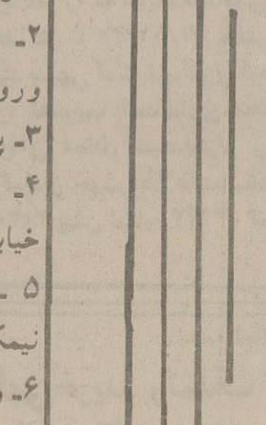 ۲ـ
ورو
۳ـ
۴ـ
خیا
۵ ـ
نیمک
۶ـ